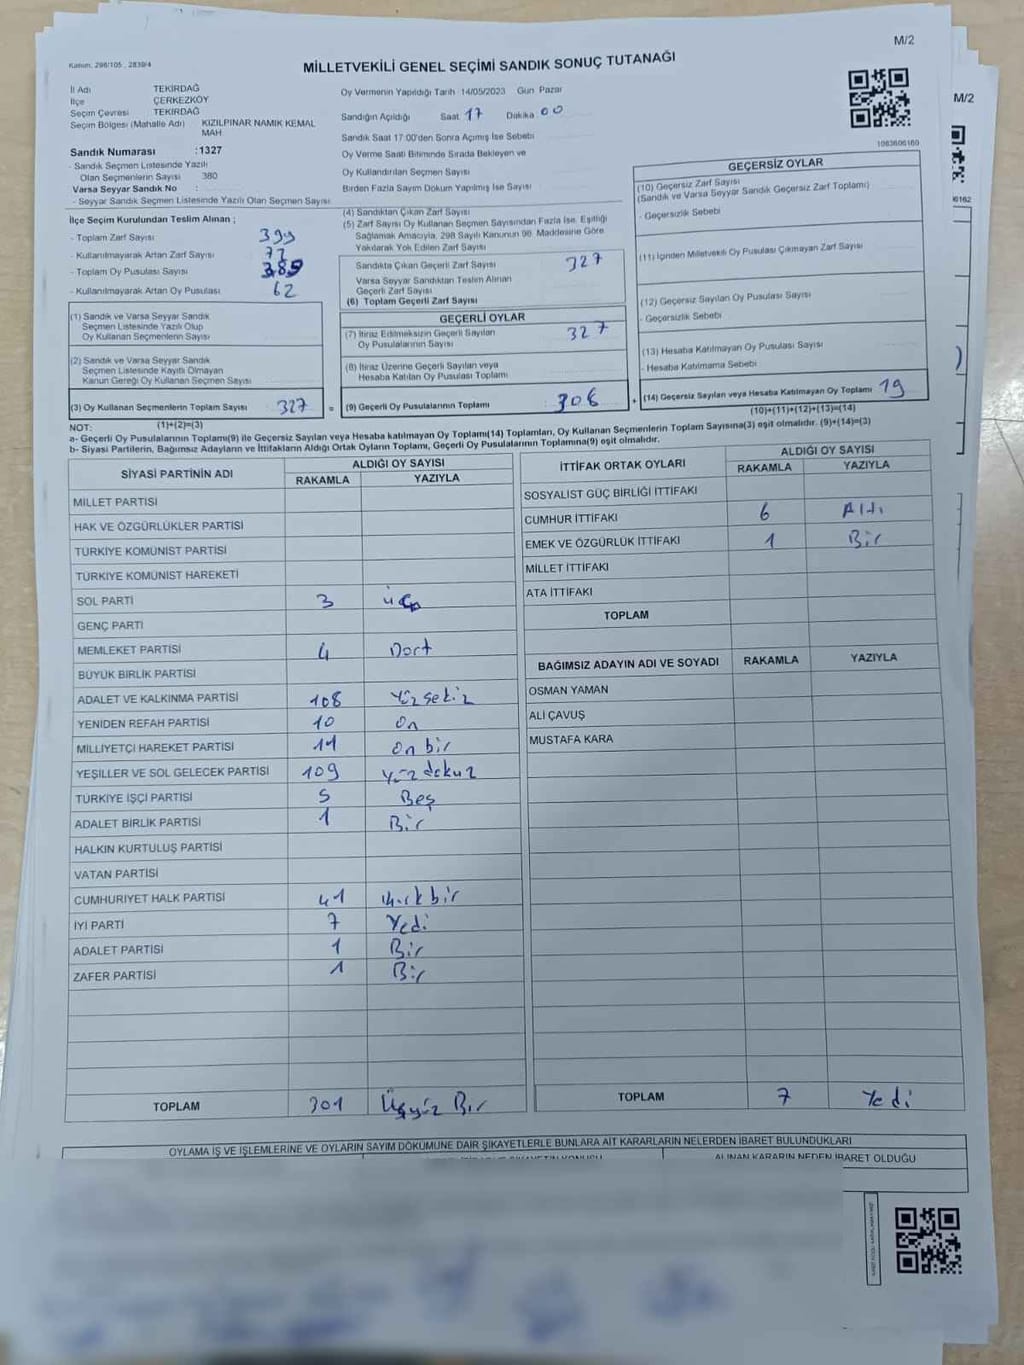 M/2
Kanun, 298/105 , 2839/4
MİLLETVEKİLİ GENEL SEÇİMİ SANDIK SONUÇ TUTANAĞI
M/2
İl Adı TEKİRDAĞ
İlçe ÇERKEZKÖY
Seçim Çevresi TEKİRDAĞ
Seçim Bölgesi (Mahalle Adı) KIZILPINAR NAMIK KEMAL MAH
Sandık Numarası :1327
- Sandık Seçmen Listesinde Yazılı
Olan Seçmenlerin Sayısı 380
Varsa Seyyar Sandık No :
- Seyyar Sandık Seçmen Listesinde Yazılı Olan Seçmen Sayısı
Oy Vermenin Yapıldığı Tarih 14/05/2023 Gün Pazar
Sandığın Açıldığı Saat 17 Dakika 00
Sandık Saat 17:00'den Sonra Açımış İse Sebebi
Oy Verme Saati Bitiminde Sırada Bekleyen ve
Oy Kullandırılan Seçmen Sayısı
Birden Fazla Sayım Döküm Yapılmış İse Sayısı
1083606160
İlçe Seçim Kurulundan Teslim Alınan ;
- Toplam Zarf Sayısı 399
- Kullanılmayarak Artan Zarf Sayısı 72
- Toplam Oy Pusulası Sayısı 389
- Kullanılmayarak Artan Oy Pusulası 62
(1) Sandık ve Varsa Seyyar Sandık
Seçmen Listesinde Yazılı Olup
Oy Kullanan Seçmenlerin Sayısı
(2) Sandık ve Varsa Seyyar Sandık
Seçmen Listesinde Kayıtlı Olmayan
Kanun Gereği Oy Kullanan Seçmen Sayısı
(3) Oy Kullanan Seçmenlerin Toplam Sayısı 327 =
(1)+(2)=(3)
(4) Sandıktan Çıkan Zarf Sayısı
(5) Zarf Sayısı Oy Kullanan Seçmen Sayısından Fazla İse, Eşitliği
Sağlamak Amacıyla, 298 Sayılı Kanunun 98. Maddesine Göre
Yakılarak Yok Edilen Zarf Sayısı
Sandıkta Çıkan Geçerli Zarf Sayısı 327
Varsa Seyyar Sandıktan Teslim Alınan
Geçerli Zarf Sayısı
(6) Toplam Geçerli Zarf Sayısı
GEÇERLİ OYLAR
(7) İtiraz Edilmeksizin Geçerli Sayılan
Oy Pusulalarının Sayısı 327
(8) İtiraz Üzerine Geçerli Sayılan veya
Hesaba Katılan Oy Pusulası Toplamı
(9) Geçerli Oy Pusulalarının Toplamı 308 +
GEÇERSİZ OYLAR
(10) Geçersiz Zarf Sayısı
(Sandık ve Varsa Seyyar Sandık Geçersiz Zarf Toplamı)
- Geçersizlik Sebebi
(11) İçinden Milletvekili Oy Pusulası Çıkmayan Zarf Sayısı
(12) Geçersiz Sayılan Oy Pusulası Sayısı
- Geçersizlik Sebebi
(13) Hesaba Katılmayan Oy Pusulası Sayısı
- Hesaba Katılmama Sebebi
(14) Geçersiz Sayılan veya Hesaba Katılmayan Oy Toplamı 19
(10)+(11)+(12)+(13)=(14)
NOT:
a- Geçerli Oy Pusulalarının Toplamı(9) ile Geçersiz Sayılan veya Hesaba katılmayan Oy Toplamı(14) Toplamları, Oy Kullanan Seçmenlerin Toplam Sayısına(3) eşit olmalıdır. (9)+(14)=(3)
b- Siyasi Partilerin, Bağımsız Adayların ve İttifakların Aldığı Ortak Oyların Toplamı, Geçerli Oy Pusulalarının Toplamına(9) eşit olmalıdır.
SİYASİ PARTİNİN ADI ALDIĞI OY SAYISI
RAKAMLA YAZIYLA
MİLLET PARTİSİ
HAK VE ÖZGÜRLÜKLER PARTİSİ
TÜRKİYE KOMÜNİST PARTİSİ
TÜRKİYE KOMÜNİST HAREKETİ
SOL PARTİ 3 üç
GENÇ PARTİ
MEMLEKET PARTİSİ 4 Dört
BÜYÜK BİRLİK PARTİSİ
ADALET VE KALKINMA PARTİSİ 108 Yüzsekiz
YENİDEN REFAH PARTİSİ 10 On
MİLLİYETÇİ HAREKET PARTİSİ 11 On bir
YEŞİLLER VE SOL GELECEK PARTİSİ 109 yüz dokuz
TÜRKİYE İŞÇİ PARTİSİ 5 Beş
ADALET BİRLİK PARTİSİ 1 Bir
HALKIN KURTULUŞ PARTİSİ
VATAN PARTİSİ
CUMHURİYET HALK PARTİSİ 41 Kırk bir
İYİ PARTİ 7 Yedi
ADALET PARTİSİ 1 Bir
ZAFER PARTİSİ 1 Bir
TOPLAM 301 Üçyüz Bir
İTTİFAK ORTAK OYLARI ALDIĞI OY SAYISI
RAKAMLA YAZIYLA
SOSYALİST GÜÇ BİRLİĞİ İTTİFAKI
CUMHUR İTTİFAKI 6 Altı
EMEK VE ÖZGÜRLÜK İTTİFAKI 1 Bir
MİLLET İTTİFAKI
ATA İTTİFAKI
TOPLAM
BAĞIMSIZ ADAYIN ADI VE SOYADI RAKAMLA YAZIYLA
OSMAN YAMAN
ALİ ÇAVUŞ
MUSTAFA KARA
TOPLAM 7 Yedi
OYLAMA İŞ VE İŞLEMLERİNE VE OYLARIN SAYIM DÖKÜMÜNE DAİR ŞİKAYETLERLE BUNLARA AİT KARARLARIN NELERDEN İBARET BULUNDUKLARI
ALINAN KARARIN NEDEN İBARET OLDUĞU